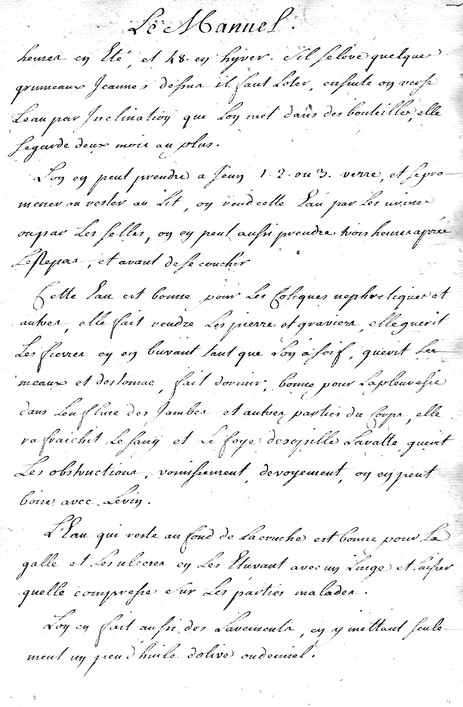 Le Manuel.
heures en Eté, et 48. en hyver. s'il seleve quelque
grumeaux Jeaunes dessus il faut Loter, ensuite on verse
Leau par Inclination que Lon met dans des bouteilles, elle
segarde deux mois au plus.
Lon en peut prendre a Jeun 1. 2. ou 3. verre, et sepro-
mener ou rester au Lit, on rend cette Eau par Les urines
oupar Les selles, on en peut aussi prendre trois heures après
LeRepas, et avant dese coucher
Cette Eau est bonne pour Les Coliques nephretiques et
autres, elle fait rendre Les pierre et graviers, elle guerit
Les fievres en en buvant tant que Lon à soif, guerit Les
meaux et destomac, fait dormir, bonne pour Lapleuresie
dans Lenflure des Jambes et autres parties du Corps, elle
rafraichit Le sang et Le foye desquille Lavatte guerit
Les obstructions, vomissement, devoyement, on en peut
boire avec Levin.
L'Eau qui reste au fond de Lacruche est bonne pour La
galle et Lesulceres en Les Etuvant avec un Linge et Laisser
quelle compresse sur Les parties malades.
Lon en fait aussi des Lavements, en y mettant seule-
ment un peu d'huile dolive oudemiel.